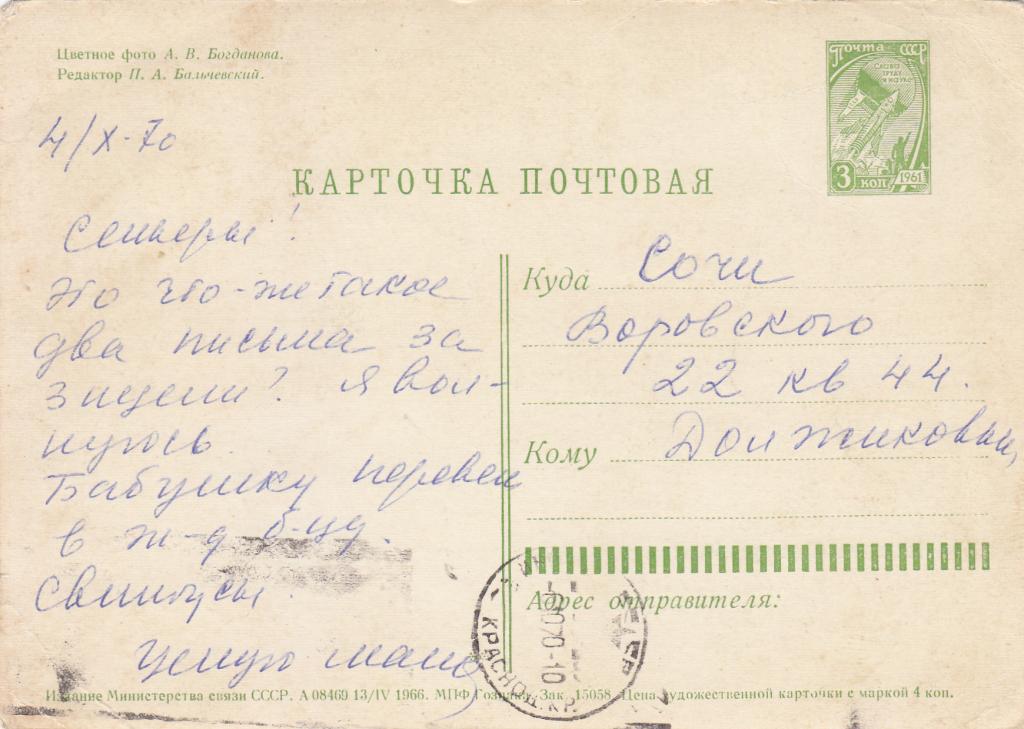 Цветное фото А. В. Богданова.
Редактор П. А. Бальчевский.
Почта СССР
СЛАВА
ТРУДУ
И НАУКЕ
3 коп 1961
4/X-70
КАРТОЧКА ПОЧТОВАЯ
Сеньеры!
Это что-же такое
два письма за
3 недели? Я вол-
нуюсь.
Бабушку перевели
в ж-д б-цу.
Свинтусы.
Целую мама
Куда Сочи
Воровского
22 кв 44.
Кому Должиковым
Адрес отправителя:
КРАСНОД. КР.
Издание Министерства связи СССР. А 08469 13/IV 1966. МПФ Гознака. Зак. 15058. Цена художественной карточки с маркой 4 коп.